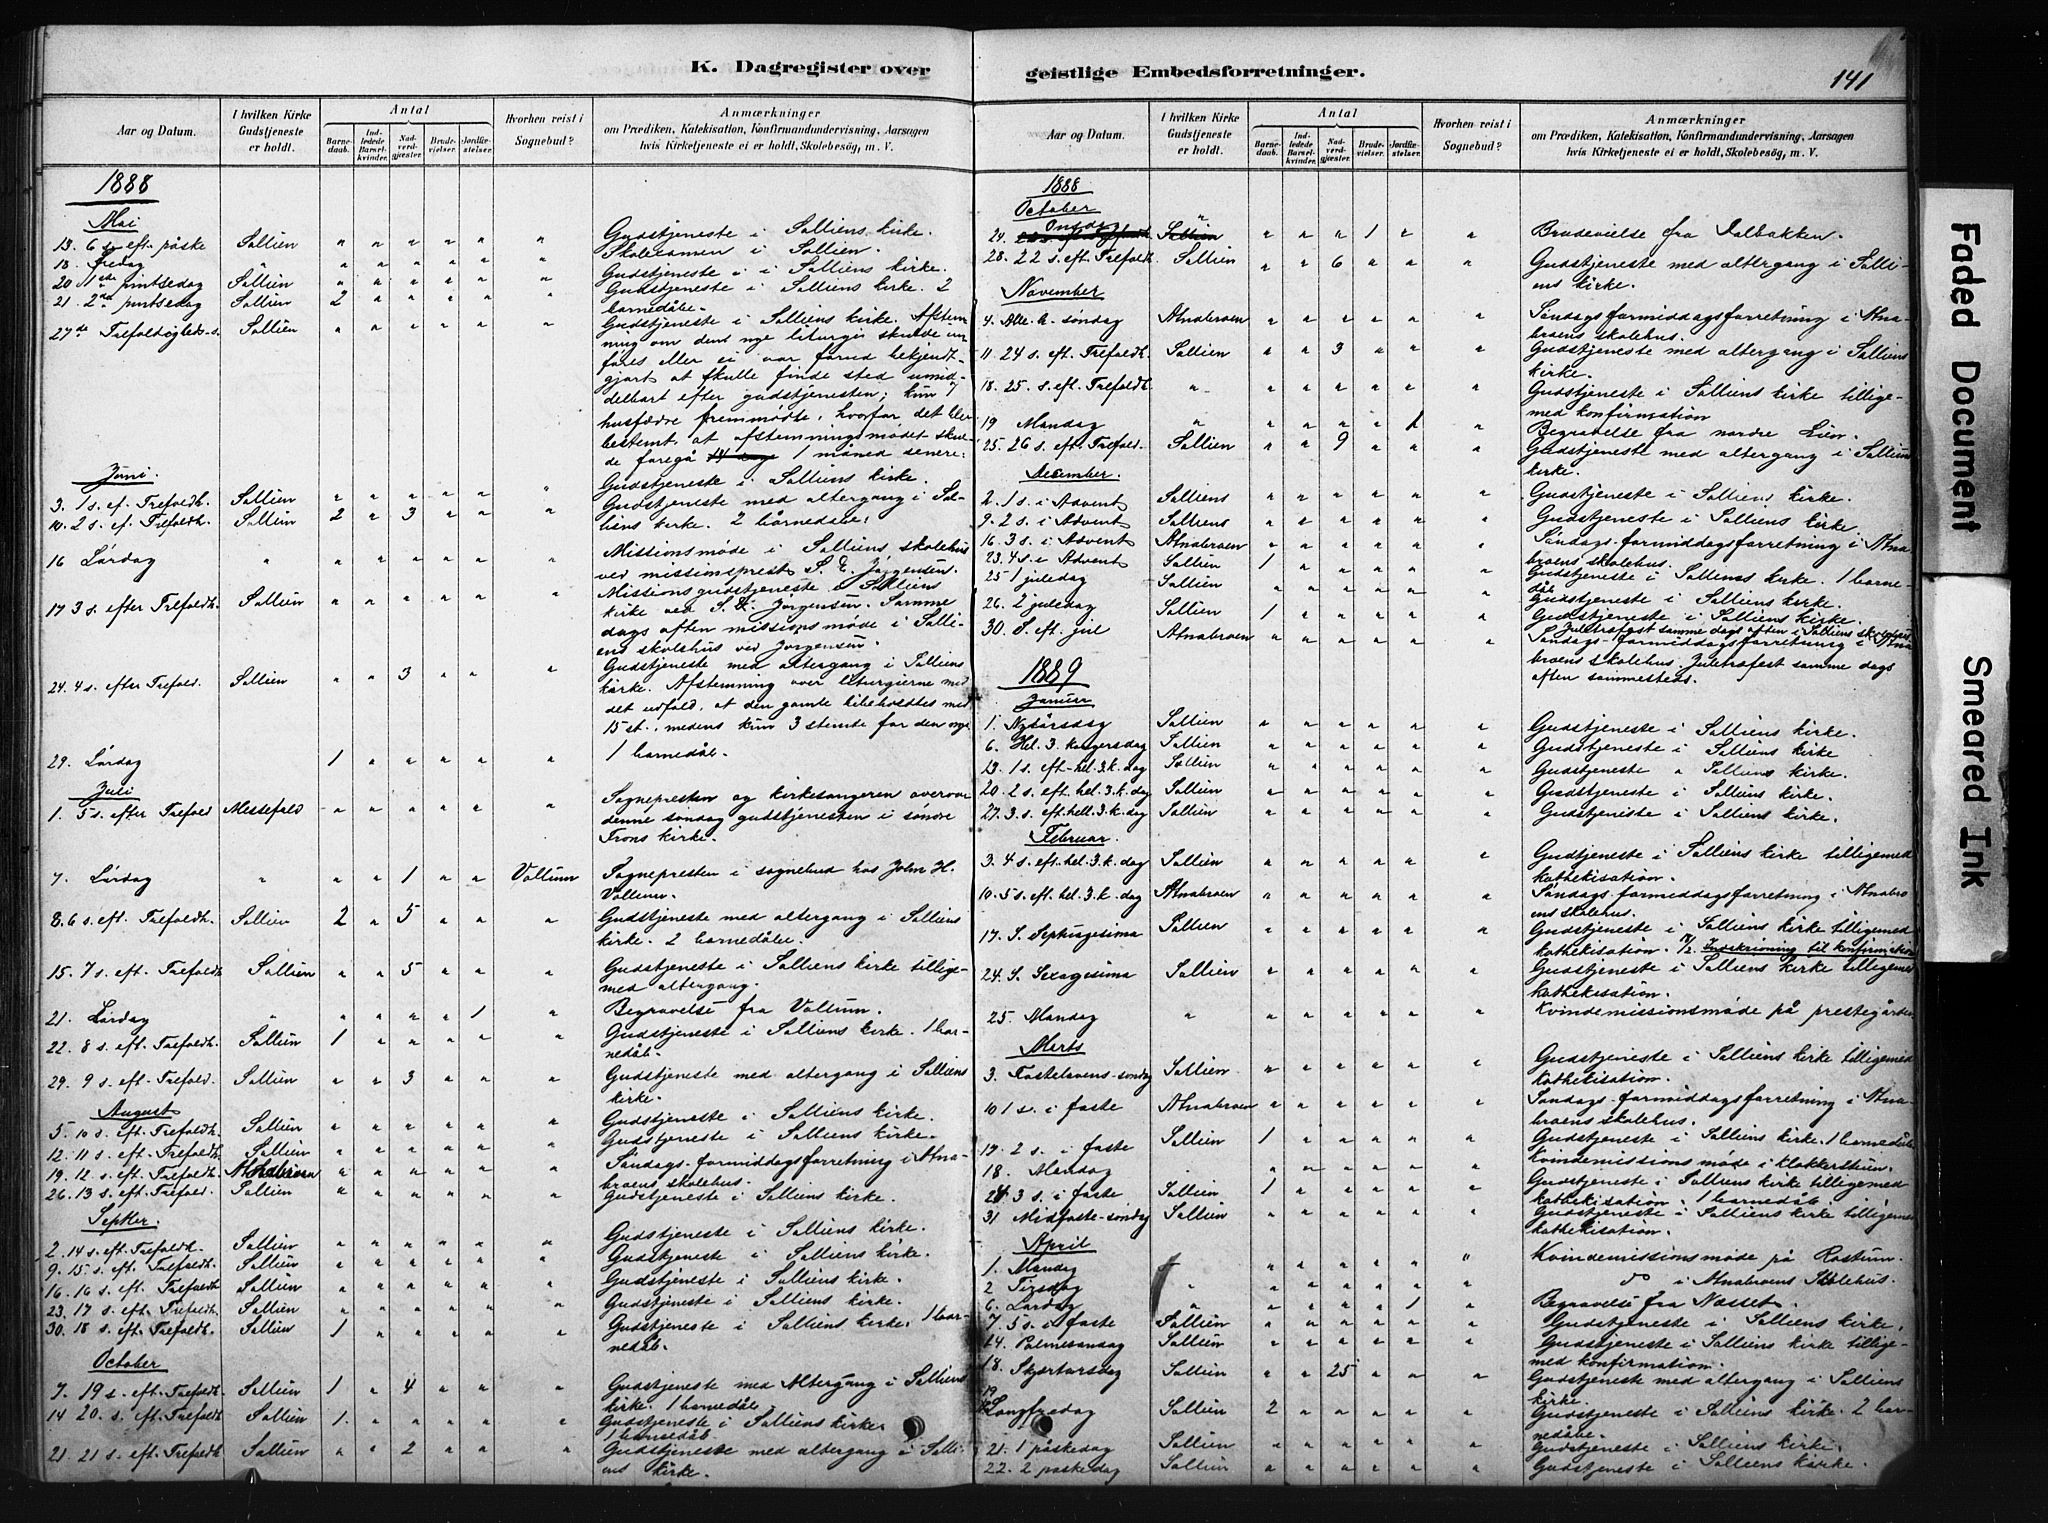 K. Dagregister over
Aar og Datum. I hvilken Kirke Gudstjeneste er holdt. Antal Barnedaab. Indledede Barselkvinder. Nadverdgjæster. Brudevielser. Jordfæstelser. Hvorhen reist i Sognebud? Anmærkninger om Prædiken, Katekisation, Konfirmandundervisning, Aarsagen hvis Kirketjeneste ei er holdt, Skolebesög, m. V.
1888
Mai
13. 6 s. eft. påske Sollien " " " " " " Gudstjeneste i Solliens kirke.
18. Fredag " " " " " " " Skoleexamen i Sollien.
20 1ste pintsedag Sollien " " " " " " Gudstjeneste i Solliens kirke.
21. 2nd pintsedag Sollien 2 " " " " " Gudstjeneste i Solliens kirke. 2
barnedåbe.
27de Trefoldighets-s. Sollien " " " " " " Gudstjeneste i Solliens kirke. Afstem
ning om den nye liturgi skulde ind
føres eller ei var forud bekjendt-
gjort at skulle finde sted umid-
delbart efter gudstjenesten; kun 7
husfædre fremmødte, hvorfor det blev
bestemt, at afstemningsmødet skul-
de foregå 14 dage 1 måned senere.
Juni
3. 1 s. ef. Trefoldh. Sollien " " " " " " Gudstjeneste i Solliens kirke.
10. 2 s. ef. Trefoldh. Sollien 2 " 3 " " " Gudstjeneste med altergang i Sol-
liens kirke. 2 barnedåbe.
16 Lørdag " " " " " " " Missionsmøde i Solliens skolehus
ved missionsprest S. E. Jørgensen.
17 3 s. efter Trefoldh. Sollien " " " " " " Missionsgudstjeneste i Solliens
kirke ved S. E. Jørgensen. Samme
dags aften missionsmøde i Solli-
ens skolehus ved Jørgensen.
24. 4 s. efter Trefold. Sollien " " 3 " " " Gudstjeneste med altergang i Solliens
kirke. Afstemning over liturgierne med
det udfald, at den gamle bibeholdtes med
15 st., medens kun 3 stemte for den nye
29. Lørdag 1 " " " " " 1 barnedåb.
Juli
1. 5 s. efter Trefold Messefald " " " " " " Sognepresten og kirkesangeren overvar
denne søndag gudstjenesten i søndre
Frons kirke.
7. Lørdag " " " 1 " " Vollum Sognepresten i sognebud hos John H.
Vollum.
8. 6 s. eft. Trefoldh. Sollien 2 " 5 " " " Gudstjeneste med altergang i Solliens
kirke. 2 barnedåbe.
15. 7 s. eft. Trefoldh Sollien " " 5 " " " Gudstjeneste i Solliens kirke tillige-
med altergang.
21. Lørdag " " " " " 1 " Begravelse fra Vollum.
22. 8 s. eft. Trefoldh. Sollien 1 " " " " " Gudstjeneste i Solliens kirke. 1 bar-
nedåb.
29. 9 s. eft. Trefold. Sollien " " 3 " " " Gudstjeneste med altergang i Solliens
kirke.
August
5. 10 s. eft. Trefoldh. Sollien " " " " " " Gudstjeneste i Solliens kirke.
12. 11 s. eft. Trefoldh. Sollien " " " " " " Gudstjeneste i Solliens kirke.
19. 12 s. eft. Trefoldh. Atnabroen " " " " " " Søndags-formiddagsforretning i Atna-
broens skolehus.
26. 13 s. eft. Trefold. Sollien " " " " " " Gudstjeneste i Solliens kirke.
Septber.
2. 14 s. eft. Trefoldh. Sollien " " " " " " Gudstjeneste i Solliens kirke.
9. 15 s. eft. Trefoldh. Sollien " " " " " " Gudstjeneste i Solliens kirke.
16. 16 s. eft. Trefoldh Sollien " " " " " " Gudstjeneste i Solliens kirke.
23. 17 s. eft. Trefoldh. Sollien " " " " " " Gudstjeneste i Solliens kirke.
30. 18 s. eft. Trefoldh. Sollien 1 " " " " " Gudstjeneste i Solliens kirke. 1 bar-
nedåb.
October
7. 19 s. eft. Trefoldh. Sollien 1 " 4 " " " Gudstjeneste med Altergang i Solliens
kirke. 1 barnedåb.
14 20. s. eft. Trefoldh. Sollien 1. " " " " " Gudstjeneste i Solliens kirke.
1 barnedåb.
21. 21 s. eft. Trefoldh Sollien " " 2 " " " Gudstjeneste med altergang i Solli-
ens kirke.
geistlige Embedsforretninger.
141
Aar og Datum. I hvilken Kirke Gudstjeneste er holdt. Antal Barnedaab. Indledede Barselkvinder. Nadverdgjæster. Brudevielser. Jordfæstelser. Hvorhen reist i Sognebud? Anmærkninger om Prædiken, Katekisation, Konfirmandundervisning, Aarsagen hvis Kirketjeneste ei er holdt, Skolebesög, m. V.
1888
October
24. Onsdag " " " " 1 " " Brudevielse fra Dalbakken.
28. 22 s. eft. Trefoldh. Sollien " " 6 " " " Gudstjeneste med altergang i Solli-
ens kirke.
November
4. Alle h. søndag Atnabroen " " " " " " Søndagsformiddagsforretning i Atna-
broens skolehus.
11. 24 s. eft. Trefoldh. Sollien " " 3 " " " Gudstjeneste med altergang i Solliens
kirke.
18. 25. s. eft. Trefoldh. " " " " " " " Gudstjeneste i Solliens kirke tillige-
med konfirmation
19 Mandag " " " " " 1 " Begravelse fra nordre Lien.
25. 26 s. eft. Trefold. Sollien " " 9 " " " Gudstjeneste med altergang i Solliens
kirke.
December.
2. 1 s. i Advent Solliens " " " " " " Gudstjeneste i Solliens kirke.
9. 2 s. i Advent Solliens " " " " " " Gudstjeneste i Solliens kirke.
16. 3 s. i Advent Atnabroen " " " " " " Søndags-formiddagsforretning i Atna
broens skolehus.
23. 4 s. i Advent Sollien 1 " " " " " Gudstjeneste i Solliens kirke. 1 barne-
dåb
25 1 juledag Sollien " " " " " " Gudstjeneste i Solliens kirke.
26. 2 juledag Sollien 1 " " " " " Gudstjeneste i Solliens kirke.
Juletræfest samme dags aften i Solliens skolehus.
30. S. eft. jul Atnabroen " " " " " " Søndags-formiddagsforretning i Atna
broens skolehus. Juletræfest samme dags
aften sammesteds.
1889
Januar
1. Nytårsdag Sollien " " " " " " Gudstjeneste i Solliens kirke.
6. Hel. 3. kongersdag Sollien " " " " " " Gudstjeneste i Solliens kirke
13. 1 s. eft. hel. 3. k. dag Sollien " " " " " " Gudstjeneste i Solliens kirke.
20. 2 s. eft. hel. 3. k. dag Sollien " " " " " " Gudstjeneste i Solliens kirke.
27. 3. s. eft. hell. 3. k. dag Sollien " " " " " " Gudstjeneste i Solliens kirke.
Februar
3. 4 s. eft. hel. 3. k. dag Sollien " " " " " " Gudtjeneste i Solliens kirke tilligemed
kathekisation.
10. 5 s. eft. hel. 3. k. dag Atnabroen " " " " " " Søndags formiddagsforretning i Atnabro
ens skolehus.
17. S. Septuagesima Sollien " " " " " " Gudstjeneste i Solliens kirke tilligemed
kathekisation. 17/2. Indskrivning til konfirmation
24. S. Sexagesima Sollien " " " " " " Gudstjeneste i Solliens kirke tilligemed
kathekisation.
25. Mandag " " " " " " " Kvindemissionsmøde på prestegården
Marts
3. Fastelavens-søndag Sollien " " " " " " Gudstjeneste i Solliens kirke tilligemed
kathekisation.
10 1 s. i faste Atnabroen " " " " " " Søndags-formiddagsforretning i Atna-
broens skolehus.
17. 2 s. i faste Sollien 1 " " " " " Gudstjeneste i Solliens kirke. 1 barnedåb.
18. Mandag " " " " " " " Kvindemissionsmøde i Klokkerstuen.
24. 3 s. i faste Sollien 1 " " " " " Gudstjeneste i Solliens kirke tilligemed
kathekisation. 1 barnedåb.
31 Midfaste-søndag Sollien " " " " " " Gudstjeneste i Solliens kirke tilligemed
kathekisation.
April
1. Mandag " " " " " " Kvindemissionsmøde på Rostum.
2 Tirsdag " " " " " " " do i Atnabroens Skolehus.
6. Lørdag " " " " " 1 " Begravelse fra Næsset.
7. 5 s. i faste Sollien " " " " " " Gudstjeneste i Solliens kirke.
14. Palmesøndag Sollien " " " " " " Gudstjeneste i Solliens kirke tillige-
med konfirmation.
18. Skjærtorsdag Sollien " " 25 " " " Gudstjeneste med altergang i Solliens
kirke.
19 Langfredag Sollien 2 " " " " " Gudstjeneste i Solliens kirke. 2 bar-
nedåbe.
21. 1 påskedag Sollien " " " " " " Gudstjeneste i Solliens kirke.
22. 2 påskedag Sollien " " " " " " Gudstjeneste i Solliens kirke.
Faded Document
Smeared Ink